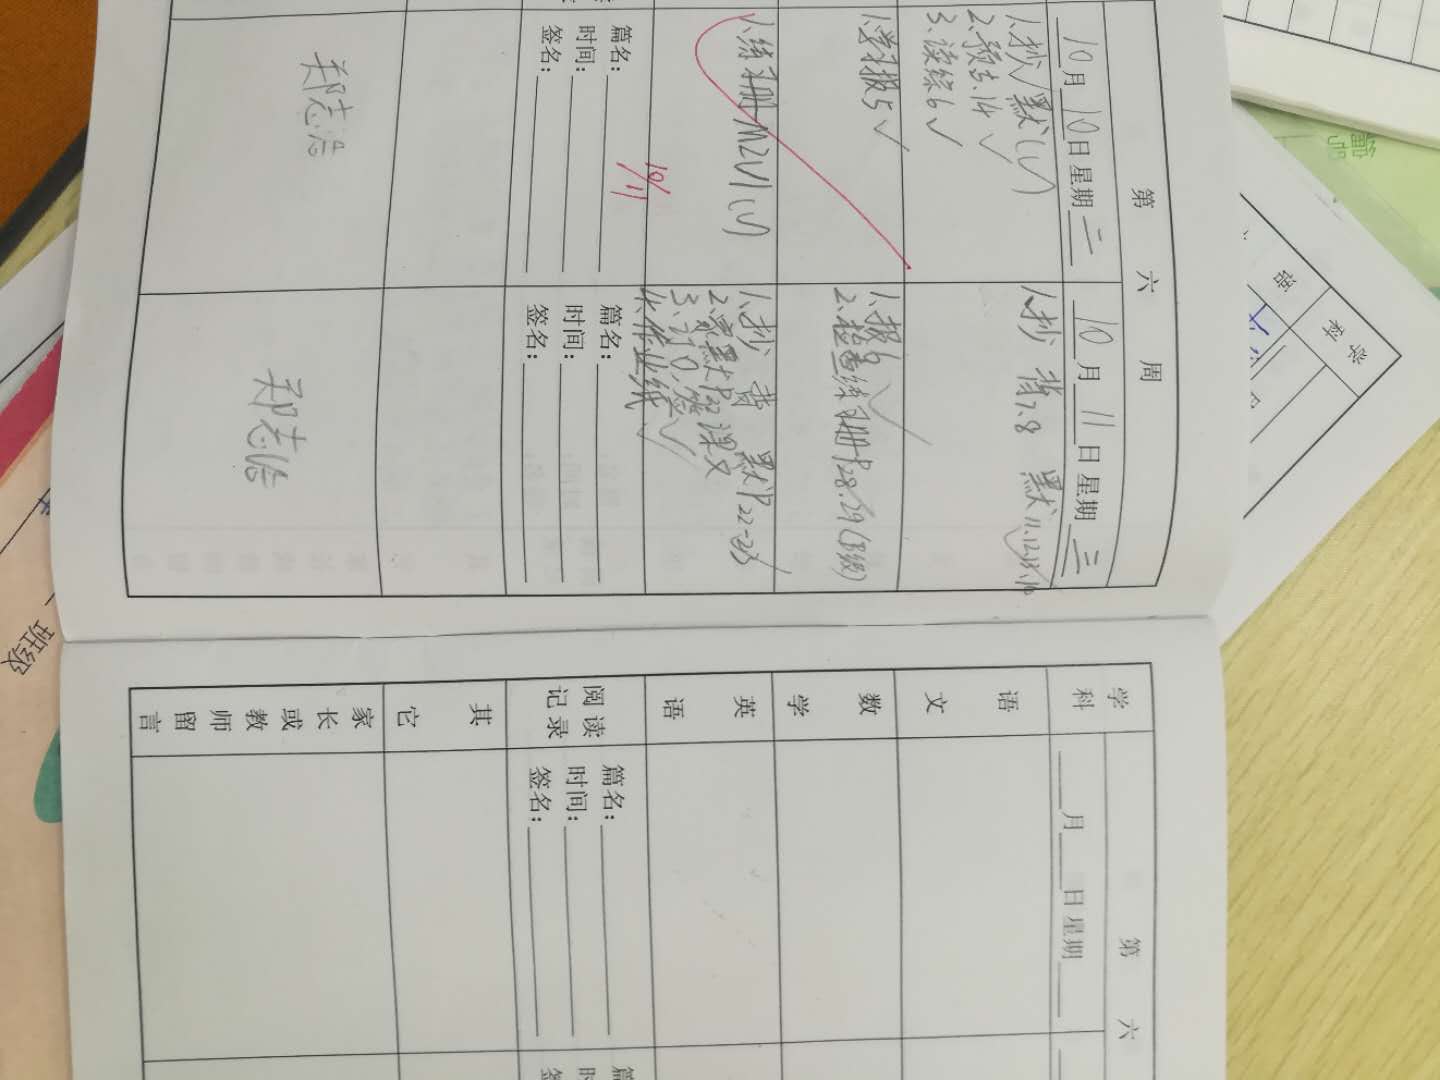 第六周
10月10日星期二
1.抄 默(1)
2.预古.14 ✓
3.读综6 ✓
1.学习报5 ✓
1.练习册M2U1(1)
10/11
篇名:
时间:
签名:
郑志浩
10月11日星期三
1.抄 背7.8 默11.12.13.14
1.报6 ✓
2.检查练习册P28.29(B级)
1.抄 背 默P22-23
2.家默P22课文
3.订0,签 ✓
4.作业纸 ✓
篇名:
时间:
签名:
郑志浩
学科
第六
月 日星期
语文
数学
英语
阅读记录
篇名:
时间:
签名:
其它
家长或教师留言
篇
时
签
学科
语
班级